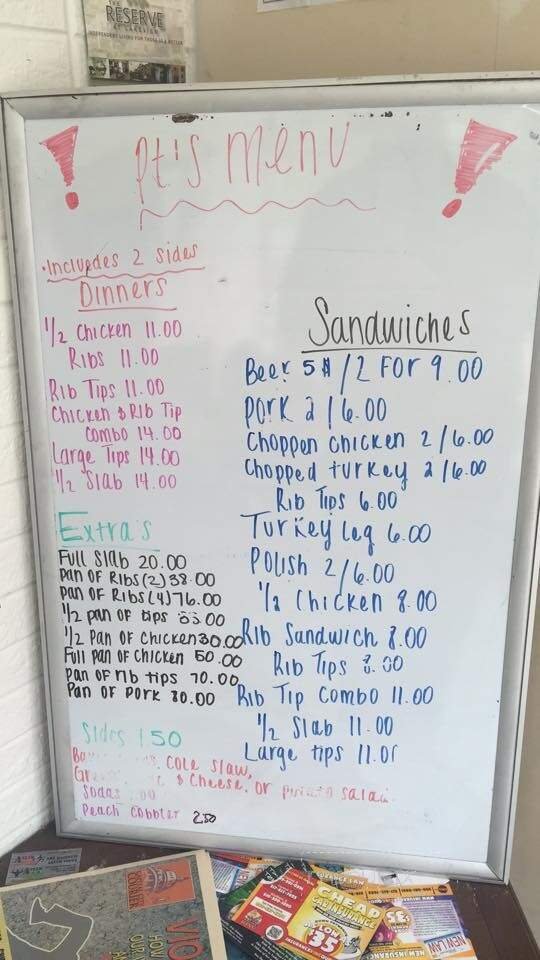 THE
RESERVE
AT LAKEVIEW
INDEPENDENT LIVING FOR THOSE 55 & BETTER
Pt's Menu
• Includes 2 sides
Dinners
1/2 Chicken 11.00
Ribs 11.00
Rib Tips 11.00
Chicken & Rib Tip
Combo 14.00
Large Tips 14.00
1/2 Slab 14.00
Extra's
Full Slab 20.00
Pan of Ribs(2) 38.00
Pan of Ribs(4) 76.00
1/2 pan of tips
1/2 Pan of Chicken 30.00
Full pan of Chicken 50.00
Pan of rib tips 70.00
Pan of Pork 30.00
Sides 1.50
Cole Slaw,
& Cheese, or Potato Salad
Sodas
Peach Cobbler 2.50
Sandwiches
Beef 5 / 2 For 9.00
Pork 2/6.00
Choppen Chicken 2/6.00
Chopped turkey 2/6.00
Rib Tips 6.00
Turkey Leg 6.00
Polish 2/6.00
1/2 Chicken 8.00
Rib Sandwich 8.00
Rib Tips 8.00
Rib Tip Combo 11.00
1/2 Slab 11.00
Large tips 11.00
VIO
HOW
OUR
CHEAP
CAR INSURANCE
LOW
35
NEW LAW